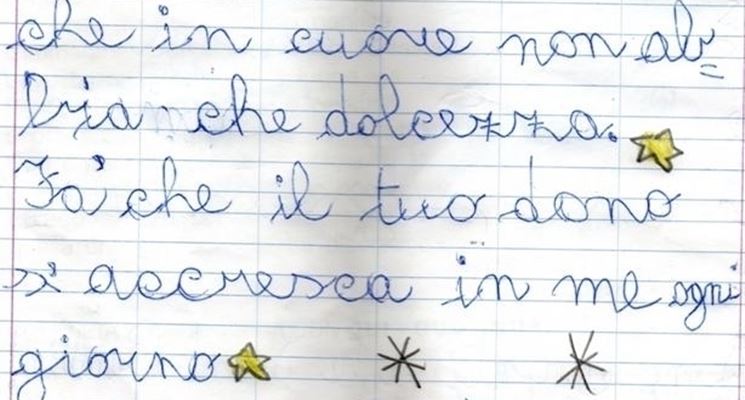 che in cuore non ab=
bia che dolcezza.
Fa' che il tuo dono
s'accresca in me ogni
giorno